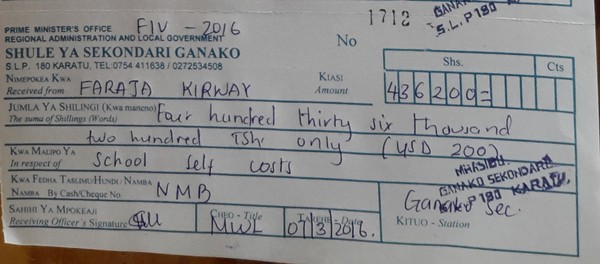 PRIME MINISTER'S OFFICE FIV - 2016
REGIONAL ADMINISTRATION AND LOCAL GOVERNMENT
SHULE YA SEKONDARI GANAKO
S.L.P. 180 KARATU, TEL:0754 411638 / 0272534508
No 1712
GANAKO
S.L.P 180
NIMEPOKEA KWA
Received from FARAJA KIRWAY
KIASI
Amount
Shs. Cts
436200=
JUMLA YA SHILINGI (Kwa maneno)
The suma of Shillings (Words) Four hundred thirty six thousand
two hundred Tsh only (USD 200)
KWA MALIPO YA
In respect of School self costs
KWA FEDHA TASLIMU/HUNDI/NAMBA
NAMBA By Cash/Cheque No. NMB
MHASIBU
GANAKO SEKONDARI
P 180 KARATU.
Ganako Sec.
KITUO - Station
SAHIHI YA MPOKEAJI
Receiving Officer's Signature
CHEO - Title
MWL
TAREHE - Date
07/3/2016.